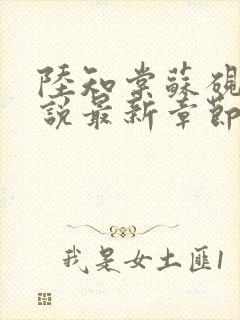 陸知棠蘇硯
說最新章節
我是女土匪1